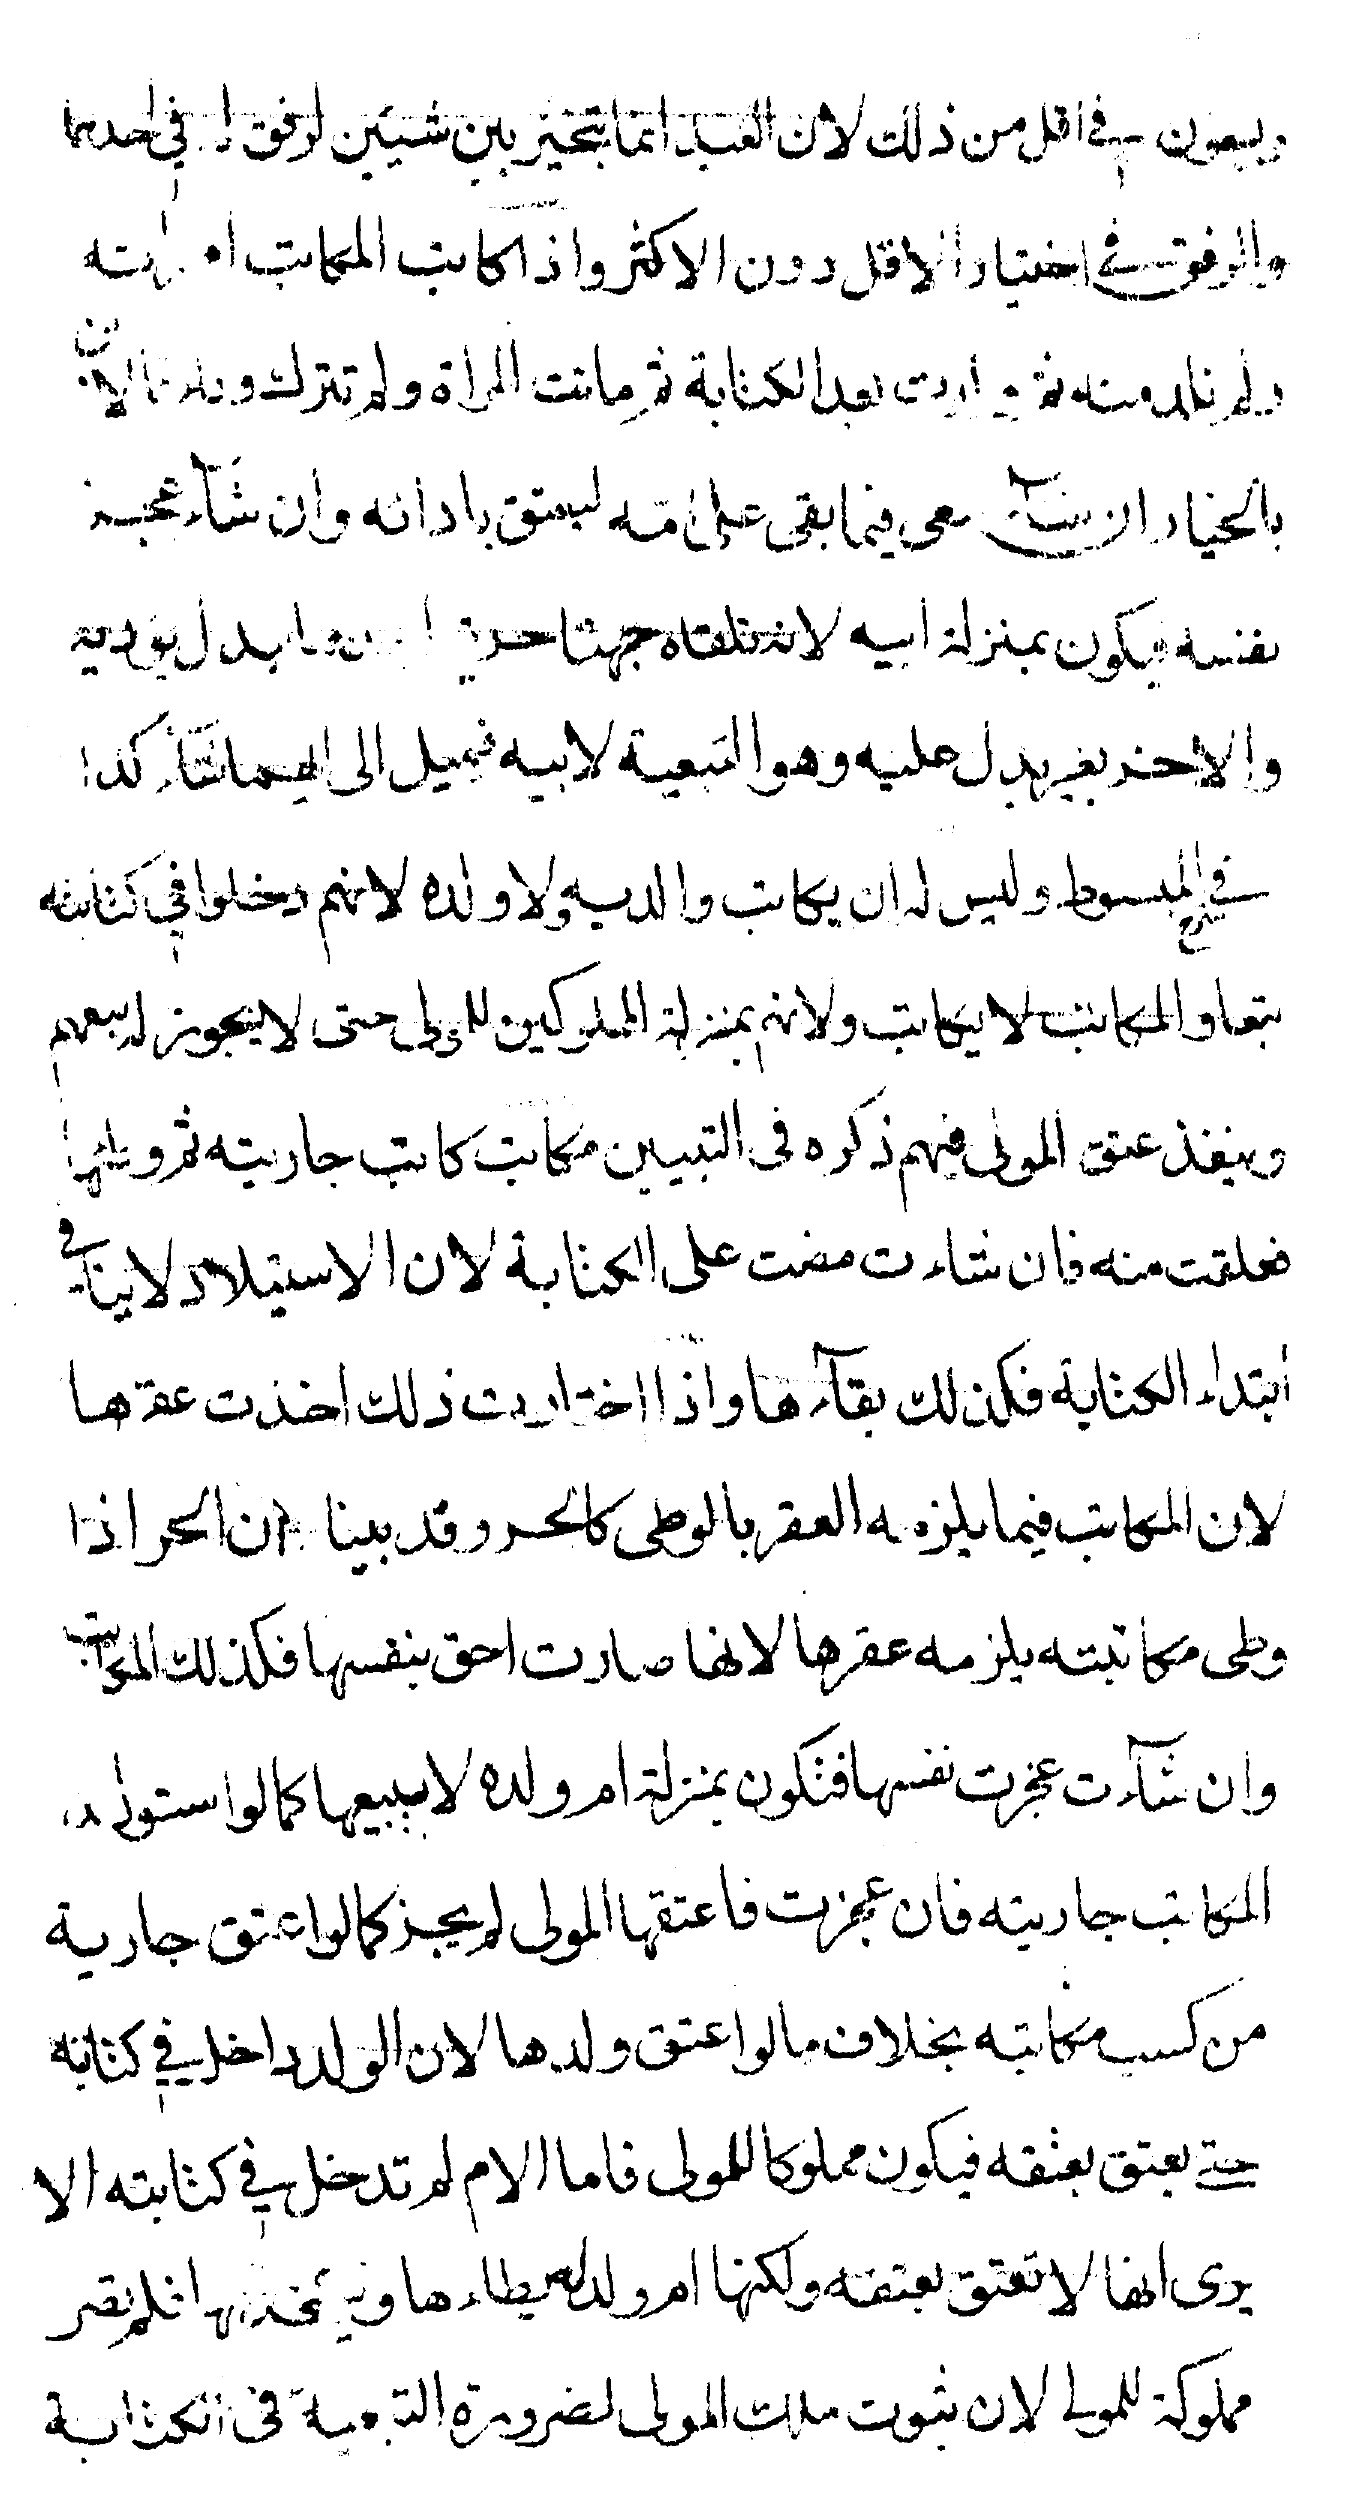 ويسعون في اقل من ذلك لان العبد انما يتخير بين شيئين لرفق له في احدهما
والرفق في اختيار الاقل دون الاكثر واذا كاتب المكاتب امراته
ولم تلد منه ثم ولدت بعد الكتابة ثم ماتت المراة ولم تترك وفاء فالابن
بالخيار ان شآء سعى فيما بقى على امه ليعتق بادائه وان شآء عجز
نفسه فيكون بمنزلة ابيه لانه تلقاه جهتا حرية احدهما ببدل يؤديه
والاخر بغير بدل عليه وهو التبعية لابيه فيميل الى ايهما شآء كذا
في المبسوط وليس له ان يكاتب والديه ولا ولده لانهم دخلوا في كتابته
تبعا والمكاتب لا يكاتب ولانهم بمنزلة المملوكين للمولى حتى لا يجوز له بيعهم
وينفذ عتق المولى فيهم ذكره في التبيين مكاتب كاتب جاريته ثم وطئها
فعلقت منه فان شاءت مضت على الكتابة لان الاستيلاد لا ينافي
ابتداء الكتابة فكذلك بقآءها واذا اختارت ذلك اخذت عقرها
لان المكاتب فيما يلزمه العقر بالوطى كالحر وقد بينا ان الحر اذا
وطى مكاتبته يلزمه عقرها لانها صارت احق بنفسها فكذلك المكاتب
وان شآءت عجزت نفسها فتكون بمنزلة ام ولده لا يبيعها كما لو استولد
المكاتب جاريته فان عجزت فاعتقها المولى لم يجز كما لو اعتق جارية
من كسب مكاتبه بخلاف ما لو اعتق ولدها لان الولد داخل في كتابته
حتى يعتق بعتقه فيكون مملوكا للمولى فاما الام لم تدخل في كتابته الا
يرى انها لا تعتق بعتقه ولكنها ام ولد له يطاءها ويستخدمها فلم تصر
مملوكة للمولى لان ثبوت ملك المولى لضرورة التبعية في الكتابة